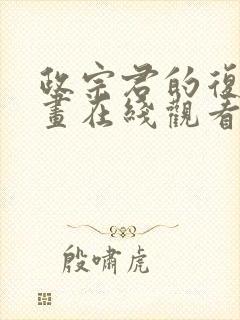 政宗君的復
畫在綫觀看
殷嘯虎